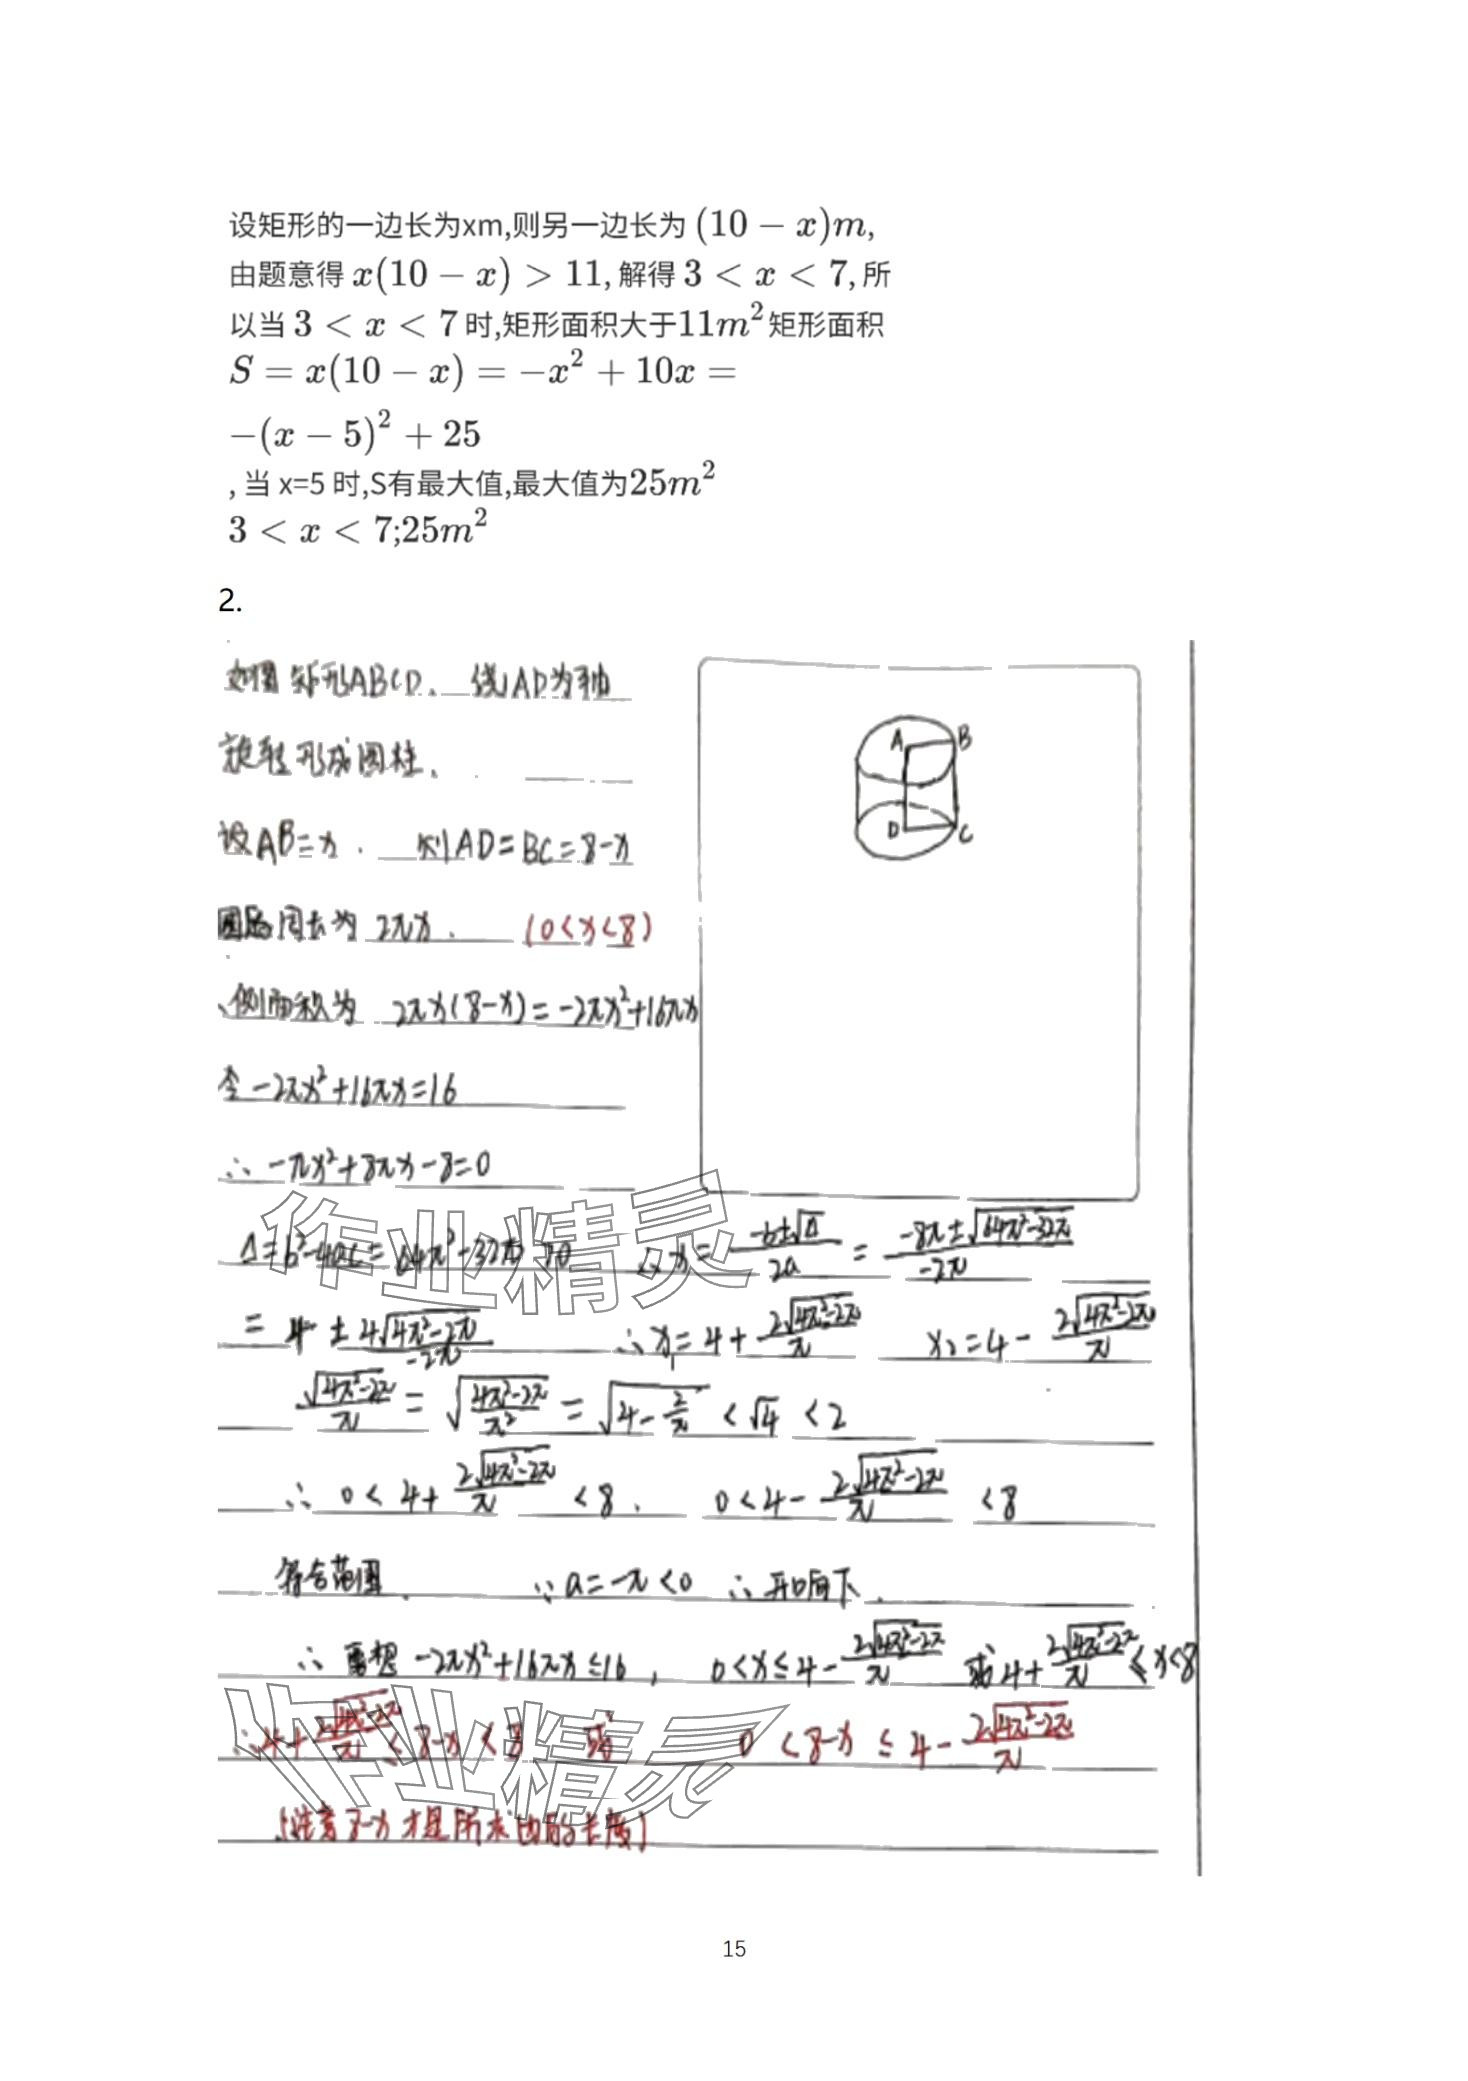 设矩形的一边长为xm,则另一边长为 (10 − x)m,
由题意得 x(10 − x) > 11, 解得 3 < x < 7, 所
以当 3 < x < 7 时,矩形面积大于11m² 矩形面积
S = x(10 − x) = −x² + 10x =
−(x − 5)² + 25
, 当 x=5 时,S有最大值,最大值为25m²
3 < x < 7;25m²
2.
如图 矩形ABCD. 绕AD为轴
旋转形成圆柱.
设AB=x. 则AD=BC=8-x
A B
D C
周长为 2πx. (0<x<8)
侧面积为 2πx(8-x)=-2πx²+16πx
令 -2πx²+16πx=16
∴ -πx²+8πx-8=0
Δ=b²-4ac=64π²-32π>0 ∴x=(-b±√Δ)/2a = (-8π±√(64π²-32π))/(-2π)
= 4 ± 4√(4π²-2π)/(-2π) ∴x₁=4+2√(4π²-2π)/π x₂=4-2√(4π²-2π)/π
√(4π²-2π)/π = √((4π²-2π)/π²) = √(4-2/π) < √4 < 2
∴ 0<4+2√(4π²-2π)/π <8. 0<4-2√(4π²-2π)/π <8
符合范围. ∵a=-π<0 ∴开口向下.
∴要想 -2πx²+16πx≤16, 0<x≤4-2√(4π²-2π)/π 或 4+2√(4π²-2π)/π≤x<8
∴4+2√(4π²-2π)/π≤8-x<8 或 0<8-x≤4-2√(4π²-2π)/π
(注意8-x才是所求的 长度)
作业精灵
作业精灵
15